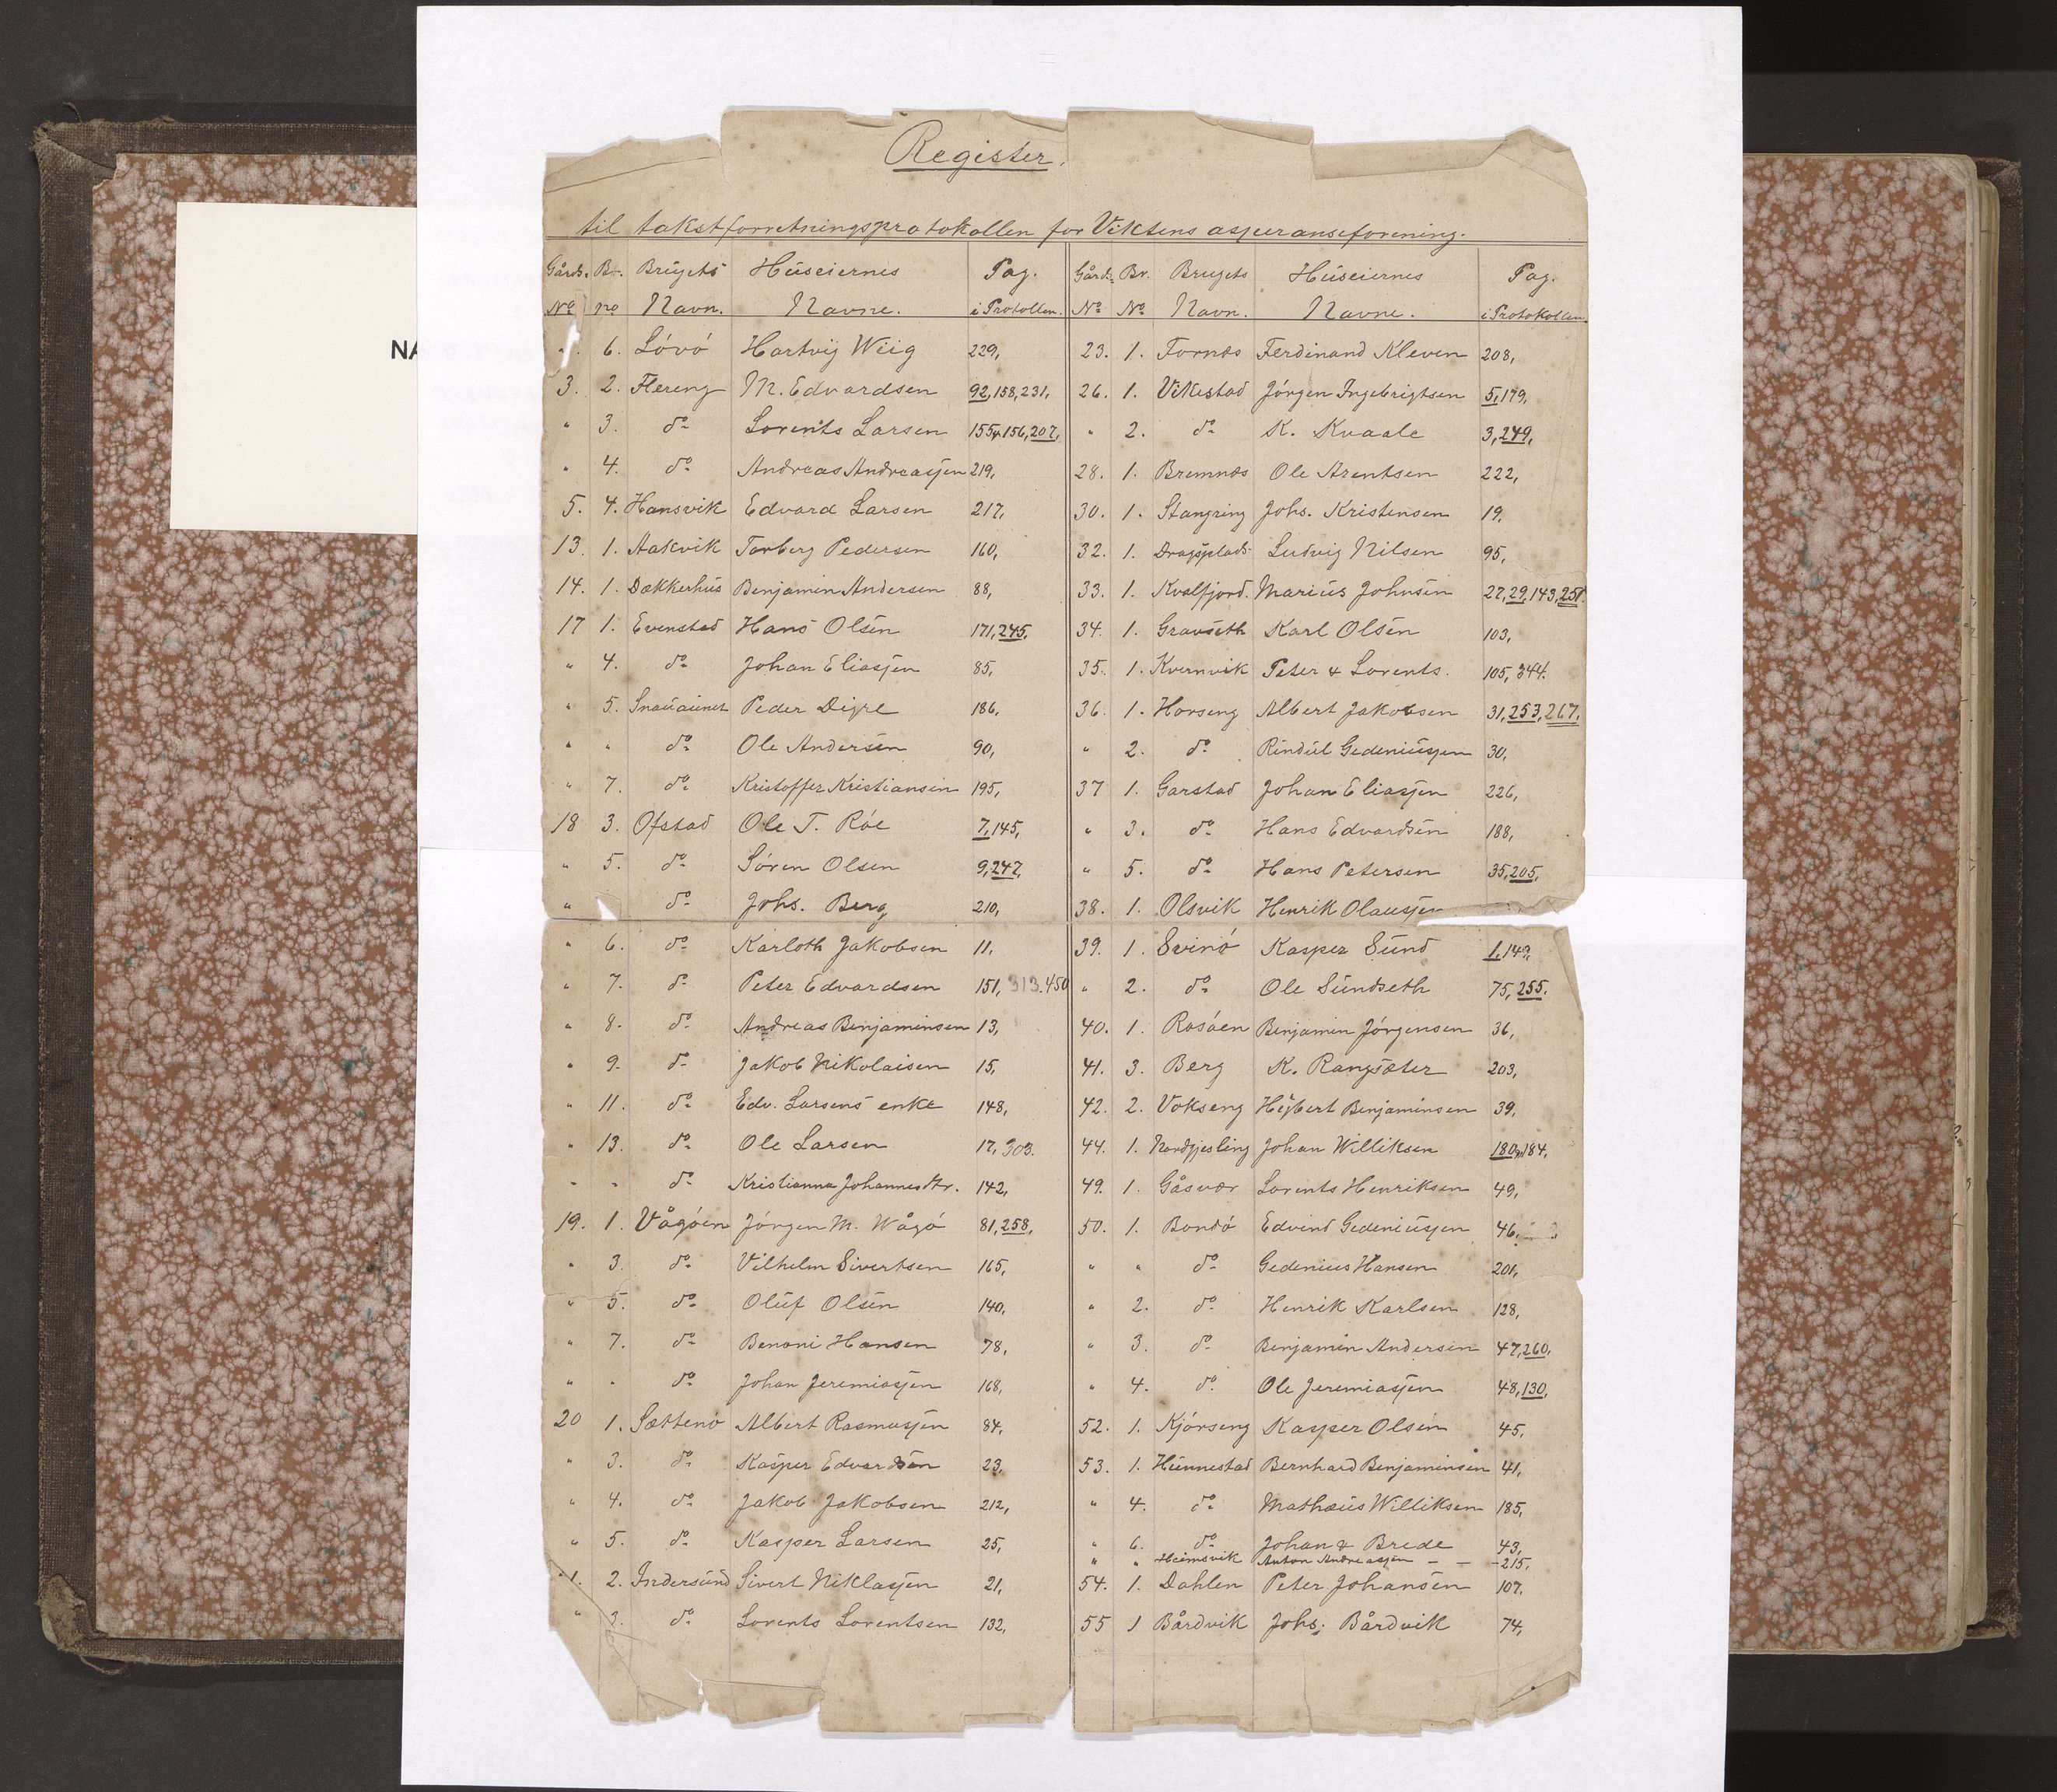 NA
Register.
til takstforretningsprotokollen for Viktens assuranseforening.
Gårds. Br. Brugets Huseiernes Pag.
No no Navn. Navne. i Protokollen.
". 6. Lóvó Hartvig Wiig 229,
3. 2. Flereng M. Edvardsen 92, 158, 231,
" 3. do Lorents Larsen 155, 156, 207,
" 4. do Andreas Andreassen 219,
5. 4. Hansvik Edvard Larsen 217,
13. 1. Aakvik Torberg Pedersen 160,
14. 1. Dækkerhus Benjamin Andersen 88,
17 1. Evenstad Hans Olsen 171, 245,
" 4. do Johan Eliassen 85,
" 5. Snauaunet Peder Digre 186,
" " do Ole Andersen 90,
" 7. do Kristoffer Kristiansen 195,
18 3. Ofstad Ole T. Róe 7, 145,
" 5. do Sóren Olsen 9, 247,
" do Johs. Berg 210,
" 6. do Karloth Jakobsen 11,
" 7. do Peter Edvardsen 151, 313. 450
" 8. do Andreas Benjaminsen 13,
" 9. do Jakob Nikolaisen 15,
" 11. do Edv. Larsens enke 148,
" 13. do Ole Larsen 17, 303.
" " do Kristianna Johannesdtr. 142,
19. 1. Vågóen Jórgen M. Wågó 81, 258,
" 3. do Vilhelm Sivertsen 165,
" 5. do Oluf Olsen 140,
" 7. do Benoni Hansen 78,
" " do Johan Jeremiassen 168,
20 1. Sættenó Albert Rasmussen 84,
" 3. do Kasper Edvardsen 23,
" 4. do Jakob Jakobsen 212,
" 5. do Kasper Larsen 25,
1. 2. Indersund Sivert Niklassen 21,
" 3. do Lorents Lorentsen 132,
Gårds Br. Brugets Huseiernes Pag.
No No Navn. Navne. i Protokollen
23. 1. Fornæs Ferdinand Kleven 208,
26. 1. Vikestad Jórgen Ingebrigtsen 5, 179,
" 2. do K. Kvaale 3, 249,
28. 1. Bremnæs Ole Arentsen 222,
30. 1. Stangring Johs. Kristensen 19,
32. 1. Dragsplads Ludvig Nilsen 95,
33. 1. Kvalfjord. Marius Johnsen 27, 29, 143, 251.
34. 1. Gravseth Karl Olsen 103,
35. 1. Kvernvik Peter & Lorents. 105, 344.
36. 1. Horseng Albert Jakobsen 31, 253, 267,
" 2. do Rindul Gedeniussen 30,
37 1. Garstad Johan Eliassen 226,
" 3. do Hans Edvardsen 188,
" 5. do Hans Petersen 35, 205,
38. 1. Olsvik Henrik Olaussen
39. 1. Svinó Kasper Sund 1, 149,
" 2. do Ole Sundseth 75, 255.
40. 1. Rosóen Benjamin Jórgensen 36,
41. 3. Berg K. Rangsæter 203,
42. 2. Vokseng Hejbert Benjaminsen 39,
44. 1. Nordgjesling Johan Williksen 180, 184,
49. 1. Gåsvær Lorents Henriksen 49,
50. 1. Bondó Edvind Gedeniussen 46,
" " do Gedenius Hansen 201,
" 2. do Henrik Karlsen 128,
" 3. do Benjamin Andersen 47, 260,
" 4. do Ole Jeremiassen 48, 130,
52. 1. Kjórseng Kasper Olsen 45,
53. 1. Hunnestad Bernhard Benjaminsen 41,
" 4. do Mathæus Williksen 185,
" 6. do Johan & Brede 43,
" " Heimsvik Anton Andreassen - - - 215,
54. 1. Dahlen Peter Johansen 107,
55 1 Bårdvik Johs. Bårdvik 74,